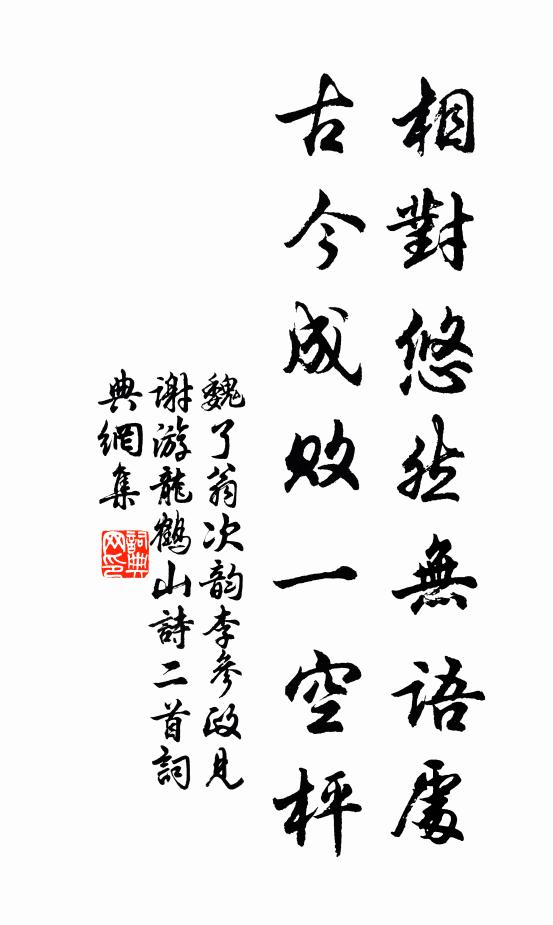 相對悠然無語處
古今成敗一空枰
魏了翁次韵李參政見
謝游龍鶴山詩二首詞
典網集
詞典
网印